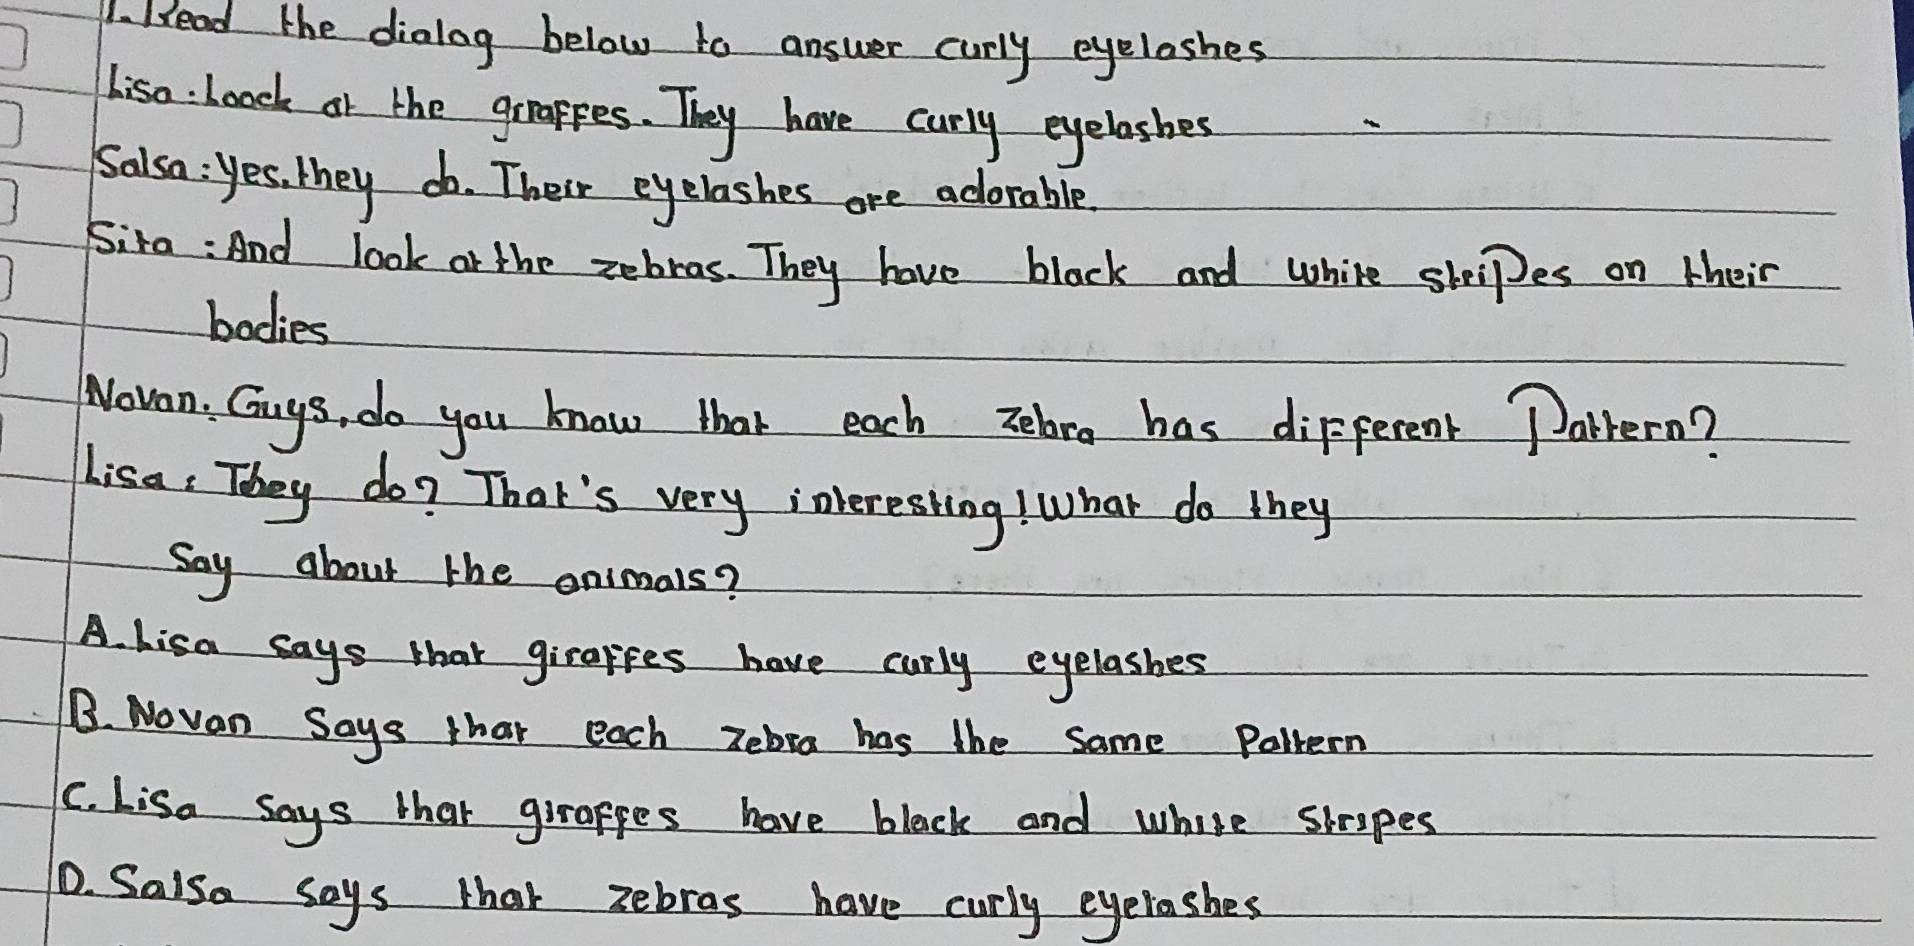 1. Read the dialog below to answer curly eyelashes
Lisa: Loock at the giraffes. They have curly eyelashes
Salsa: yes, they do. Their eyelashes are adorable.
Sita: And look at the zebras. They have black and white stripes on their
bodies
Novan: Guys, do you know that each zebra has different Pattern?
Lisa: They do? That's very interesting! What do they
Say about the animals?
A. Lisa says that giraffes have curly eyelashes
B. Novan Says that each zebra has the same Pattern
C. Lisa says that giraffes have black and white stripes
D. Salsa says that zebras have curly eyelashes